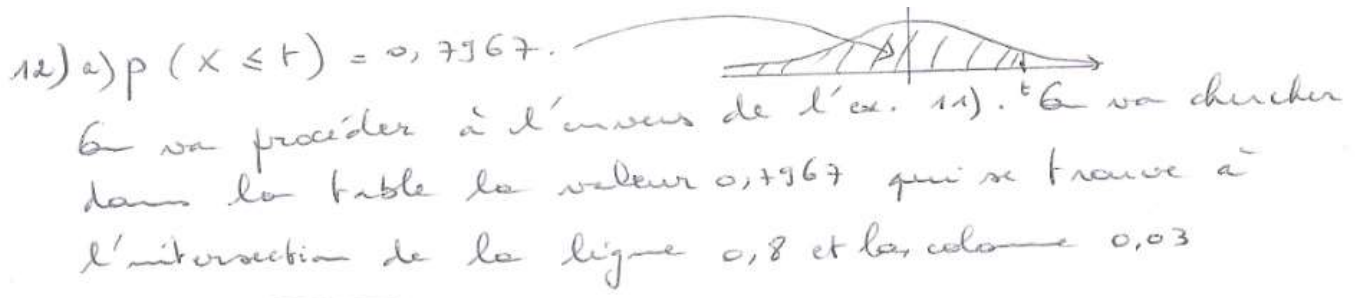 12) a) p ( X ≤ t ) = 0,7967.
t
On va procéder à l'envers de l'ex. 11). On va chercher
dans la table la valeur 0,7967 qui se trouve à
l'intersection de la ligne 0,8 et la colonne 0,03